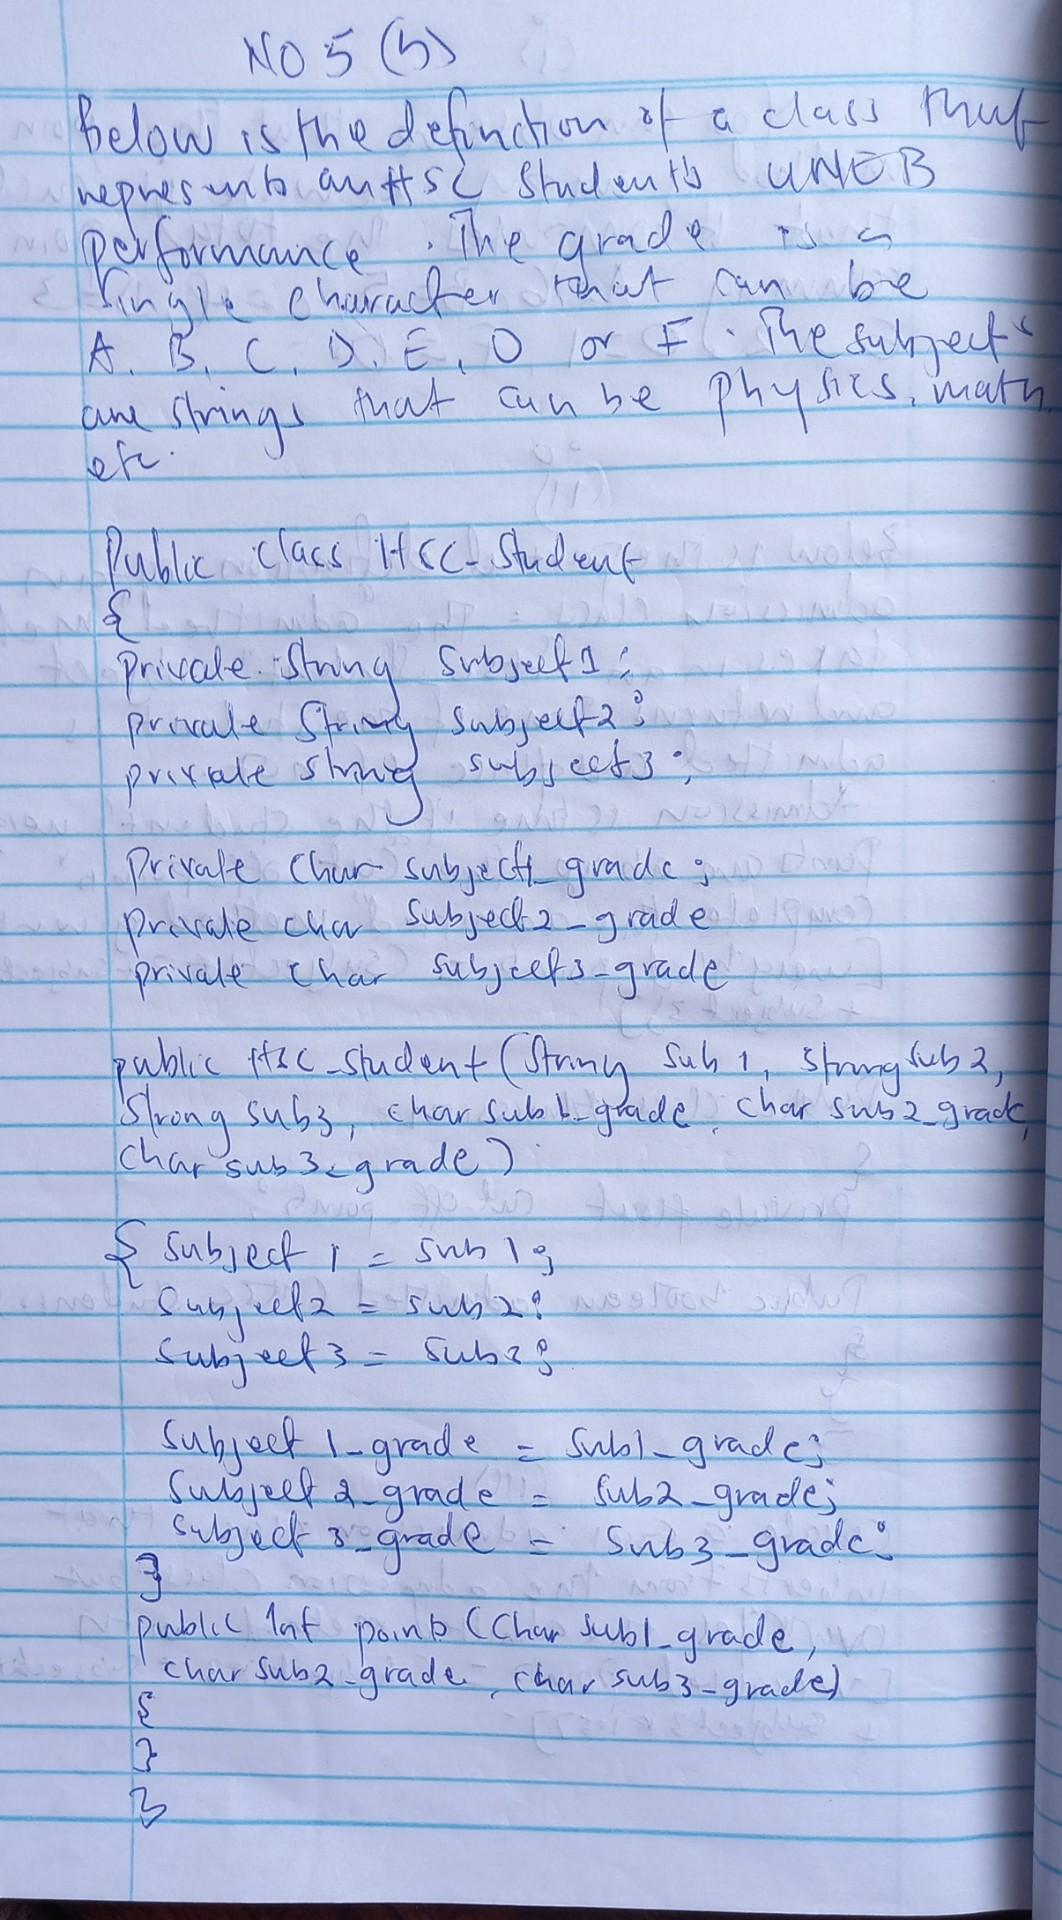 NO 5 (b)
Below is the definction of a class that
represents an HSC Students UNEB
performance. The grade is a
Single character that can be
A, B, C, D, E, O or F. The subjects
are strings that can be physics, math
etc.
Public class HSC-Student
{
private String Subject1;
private String Subject2;
private string subject3;
Private Char subject1_grade;
private char Subject2_grade
private char subject3_grade
public HSC_student (String Sub1, String sub2,
String sub3, char sub1_grade, char sub2_grade,
char sub3_grade)
{ Subject 1 = sub 1;
Subject2 = sub2;
Subject3 = Sub3;
Subject 1_grade = Sub1_grade;
Subject 2_grade = Sub2_grade;
Subject 3_grade = Sub3_grade;
}
public Int points (Char Sub1_grade,
char Sub2_grade, char sub3_grade)
{
}
}